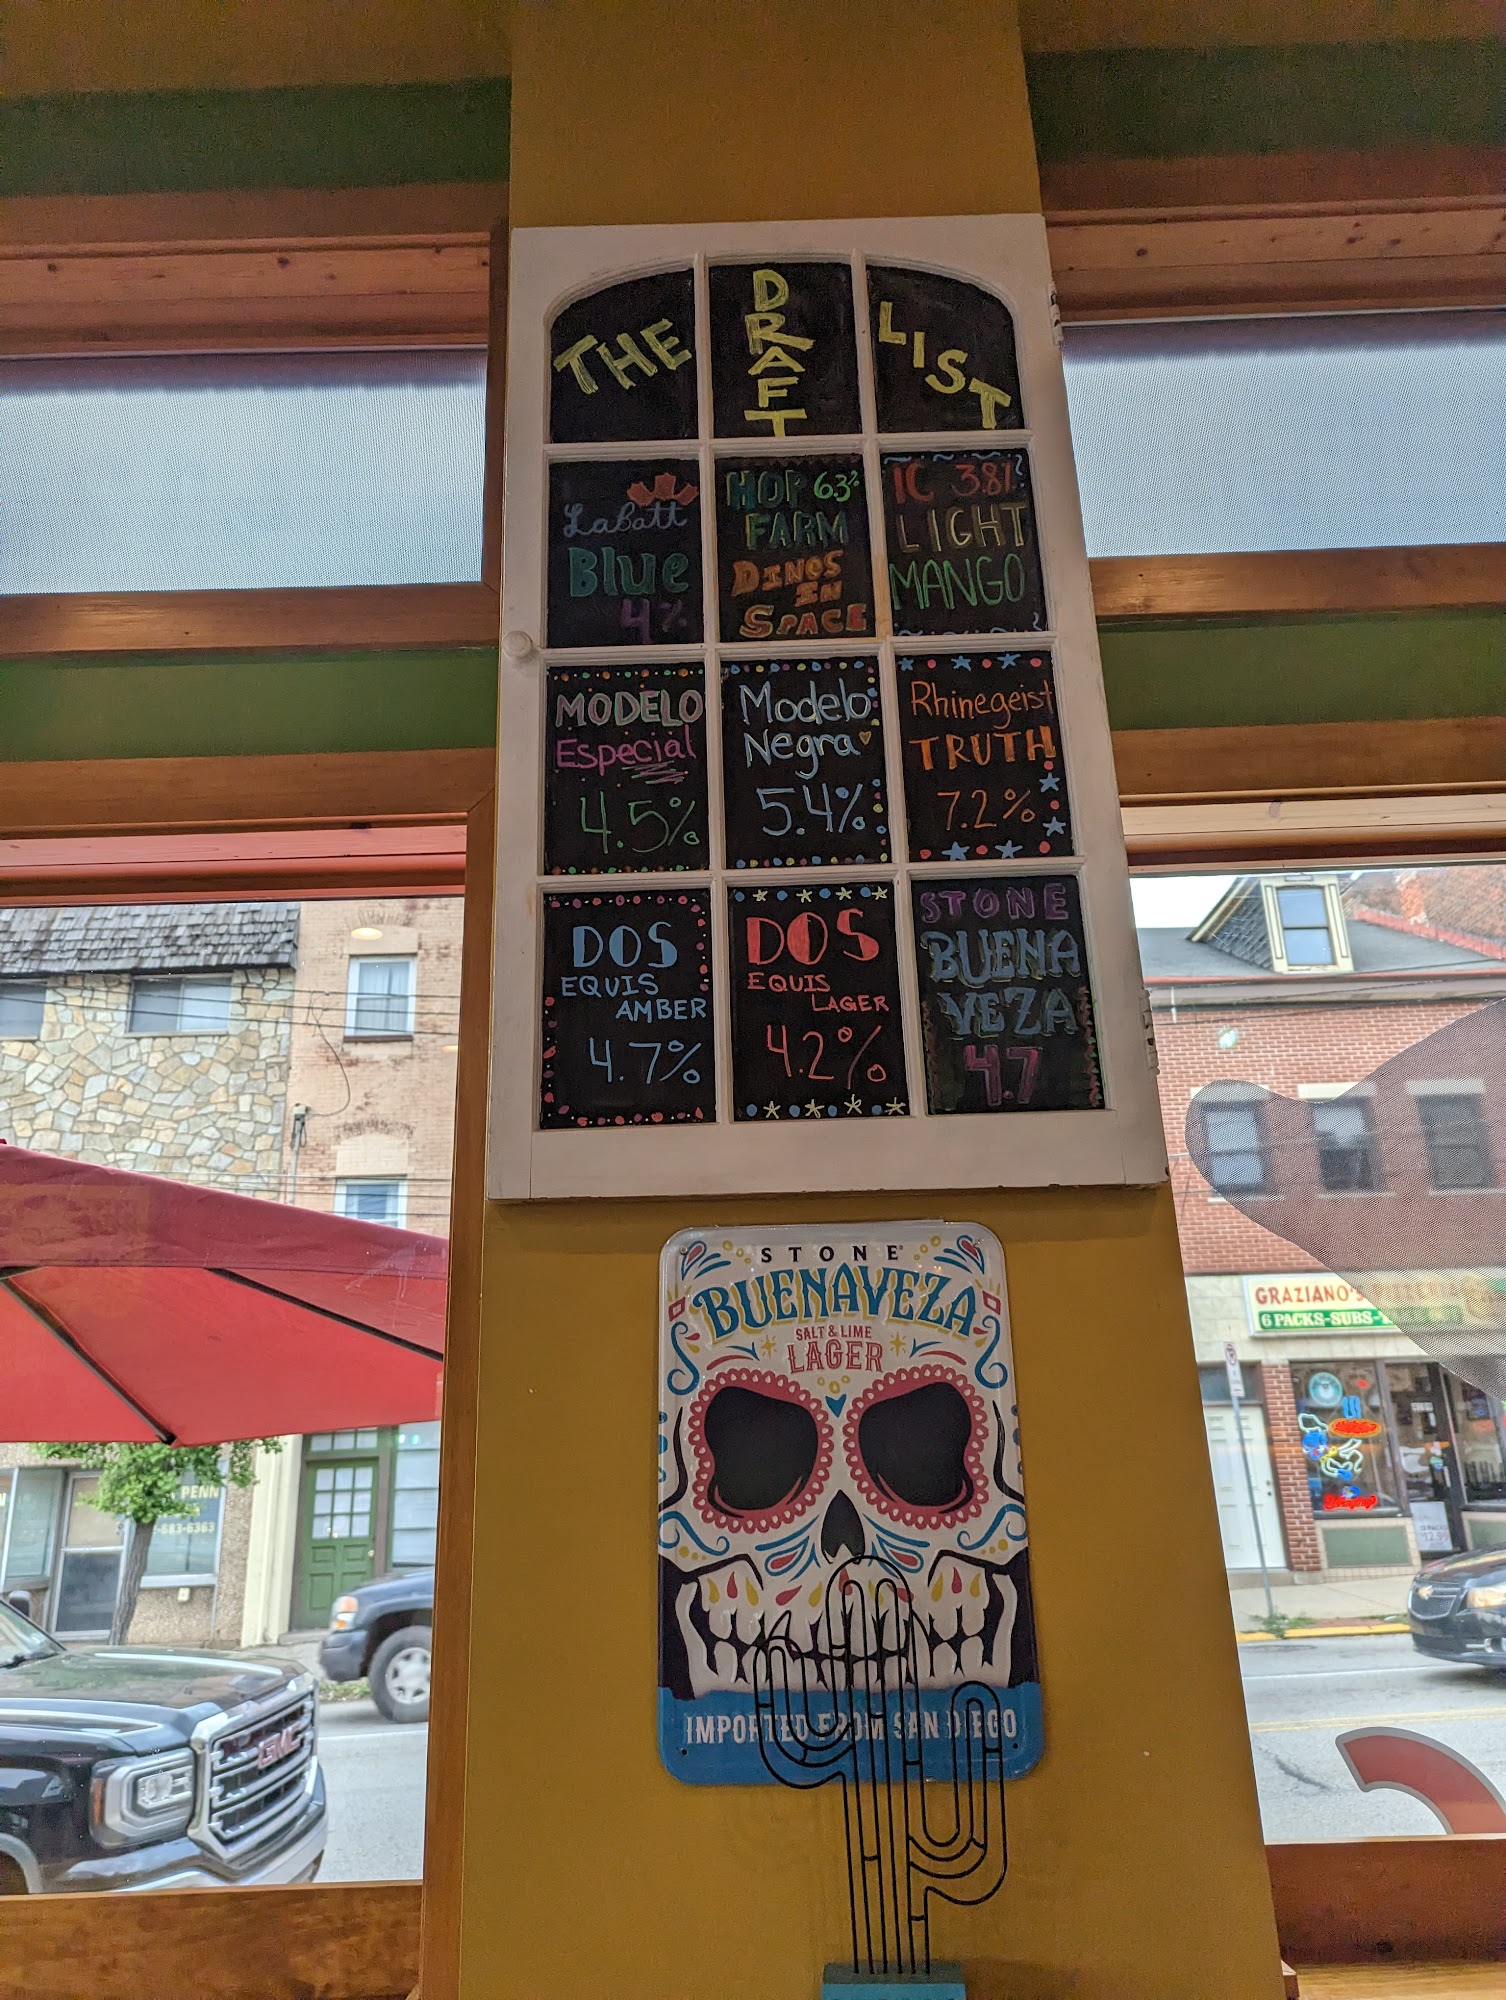 THE
DRAFT
LIST
Labatt
Blue
4%
HOP 6.3%
FARM
DINOS
IN
SPACE
IC 3.8%
LIGHT
MANGO
MODELO
Especial
4.5%
Modelo
Negra
5.4%
Rhinegeist
TRUTH
7.2%
DOS
EQUIS
AMBER
4.7%
DOS
EQUIS
LAGER
4.2%
STONE
BUENA
VEZA
4.7
STONE
BUENAVEZA
SALT & LIME
LAGER
IMPORTED FROM SAN DIEGO
GRAZIANO'S
6 PACKS-SUBS-
PENN
-683-6363
GMC